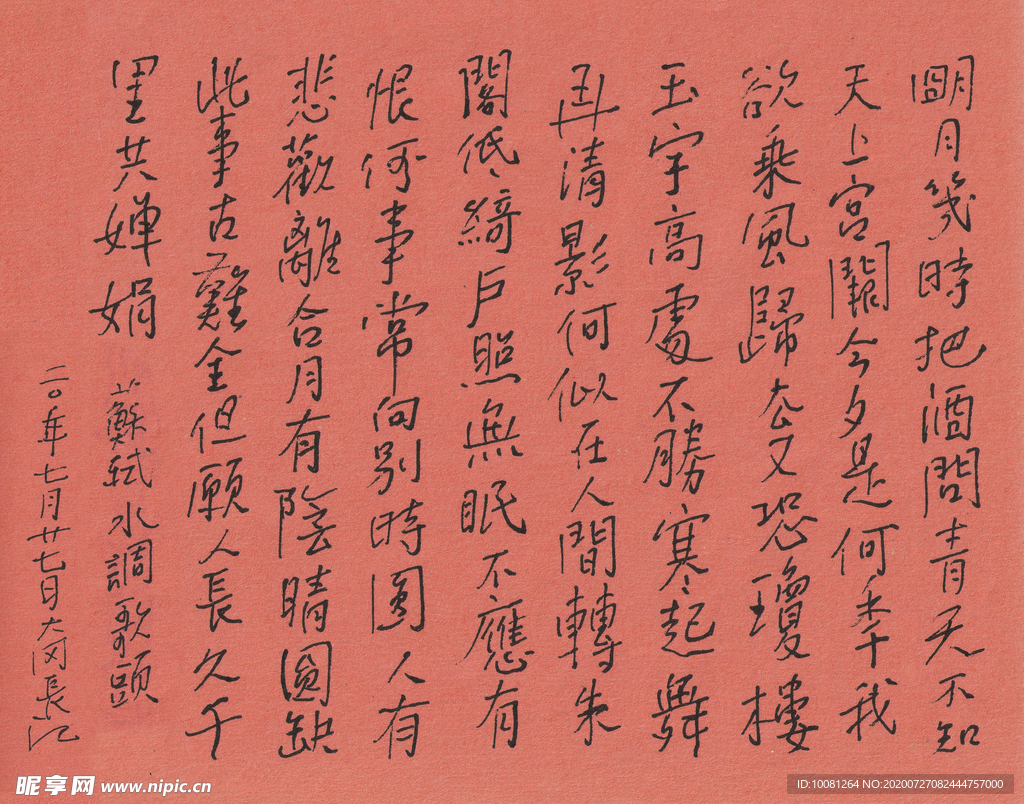 朙月箋時把酒問青天不知
天上宮闕今夕是何季我
欲乘風歸去又恐瓊樓
玉宇高處不勝寒起舞
弄清影何似在人間轉朱
閣低綺戶照無眠不應有
恨何事常向別時圓人有
悲歡離合月有陰晴圓缺
此事古難全但願人長久千
里共嬋娟
蘇軾水調歌頭
二〇年七月廿七日大冈長江
昵享网 www.nipic.cn
ID:10081264 NO:20200727082444757000